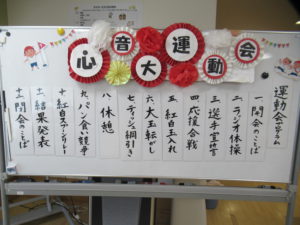 心音大運動会
運動会プログラム
一 開会のことば
二 ラジオ体操
三 選手宣誓
四 応援合戦
五 紅白玉入れ
六 大玉転がし
七 ティッシュ綱引き
八 休憩
九 パン食い競争
十 紅白スプーンリレー
十一 結果発表
十二 閉会のことば